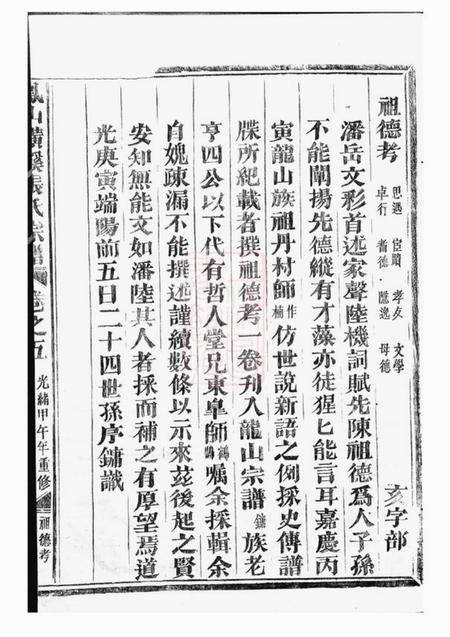 祖德考 思遇 宦蹟 孝友 文學 亥字部
卓行 耆德 隱逸 母德
潘岳文彩首述家聲陸機詞賦先陳祖德爲人子孫
不能闡揚先德縱有才藻亦徒猩匕能言耳嘉慶丙
寅龍山族祖丹村師作楠仿世說新語之例採史傳譜
牒所紀載者撰祖德考一卷刊入龍山宗譜鏽族老
亨四公以下代有哲人堂兄東皐師鶴鳴囑余採輯余
自媿疎漏不能撰述謹續數條以示來茲後起之賢
安知無能文如潘陸其人者採而補之有厚望焉道
光庚寅端陽前五日二十四世孫序鏞識
鳳山璜溪張氏宗譜 卷之五 光緒甲午年重修 祖德考